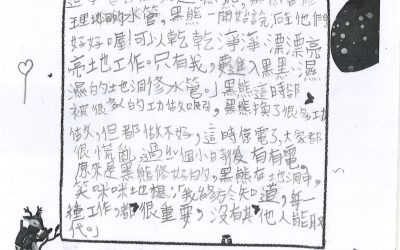 理地洞的水管，黑熊一開始說住他們
好好喔!可以乾乾淨淨、漂漂亮
亮土地工作。只有我，要進入黑黑、濕
濕的土地洞修水管。」黑熊這時卻
被很多的工作吸引，黑熊換了很多工
作，但都做不好，這時停電了，大家都
很慌亂，過些個小時後有有電，
原來是黑熊修好的，黑熊在地洞裡，
笑咪咪地想:「我終於知道，每一
種工作，都很重要，沒有其他人能取
代。」